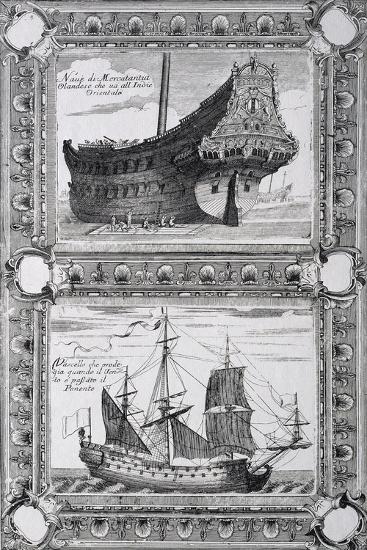 Naue di Mercatantia
Olandese che ua all Indie
Orientale
Vascello che prode-
gia quando il Ven-
to è passato il
Ponente